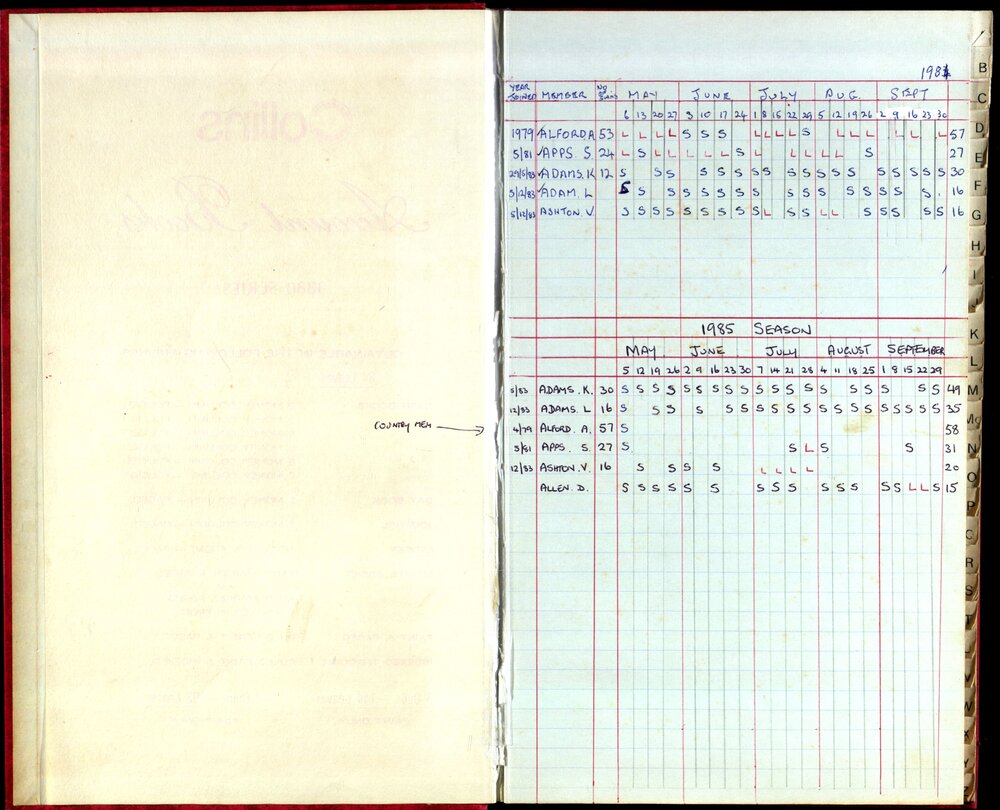 1984
YEAR JOINED MEMBER NO MAY JUNE JULY AUG. SEPT
6 13 20 27 3 10 17 24 1 8 15 22 29 5 12 19 26 2 9 16 23 30
1979 ALFORD A 53 L L L L S S S L L L L S L L L L L L 57
5/81 APPS. S. 24 L S L L L L L S L L L L L S 27
29/5/83 ADAMS. K 12 S S S S S S S S S S S S S S S S S S S 30
5/12/83 ADAM. L S S S S S S S S S S S S S S S S S S. 16
5/12/83 ASHTON. V S S S S S S S S S L S S L L S S S S S 16
1985 SEASON
MAY JUNE JULY AUGUST SEPTEMBER
5 12 19 26 2 9 16 23 30 7 14 21 28 4 11 18 25 1 8 15 22 29
5/83 ADAMS. K. 30 S S S S S S S S S S S S S S S S S S S S 49
12/83 ADAMS. L 16 S S S S S S S S S S S S S S S S S S S 35
COUNTRY MEM → 4/79 ALFORD. A. 57 S 58
5/81 APPS. S. 27 S S L S S 31
12/83 ASHTON. V. 16 S S S S L L L L 20
ALLEN. D. S S S S S S S S S S S S S S L L S 15
B
C
D
E
F
G
H
I
J
K
L
M
Mc
N
O
P
Q
R
S
T
V
W
X
Y